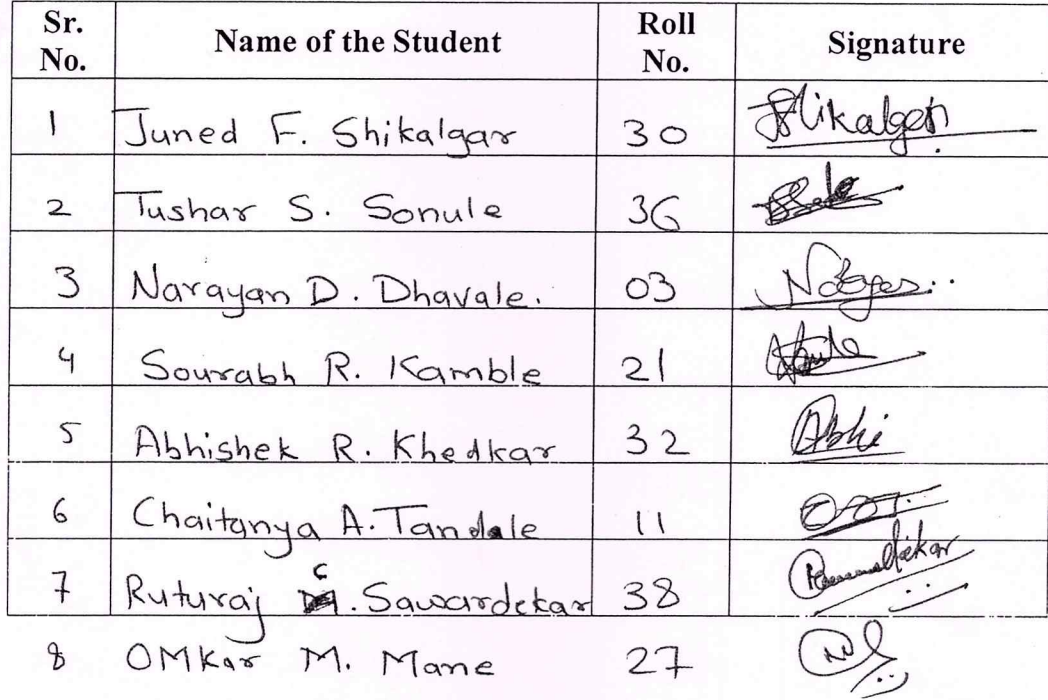 Sr. No. Name of the Student Roll No. Signature
1 Juned F. Shikalgar 30 Shikalgar
2 Tushar S. Sonule 36
3 Narayan D. Dhavale. 03
4 Sourabh R. Kamble 21
5 Abhishek R. Khedkar 32 Abhi
6 Chaitanya A. Tandale 11
7 Ruturaj C. Sawardekar 38
8 OMKar M. Mane 27